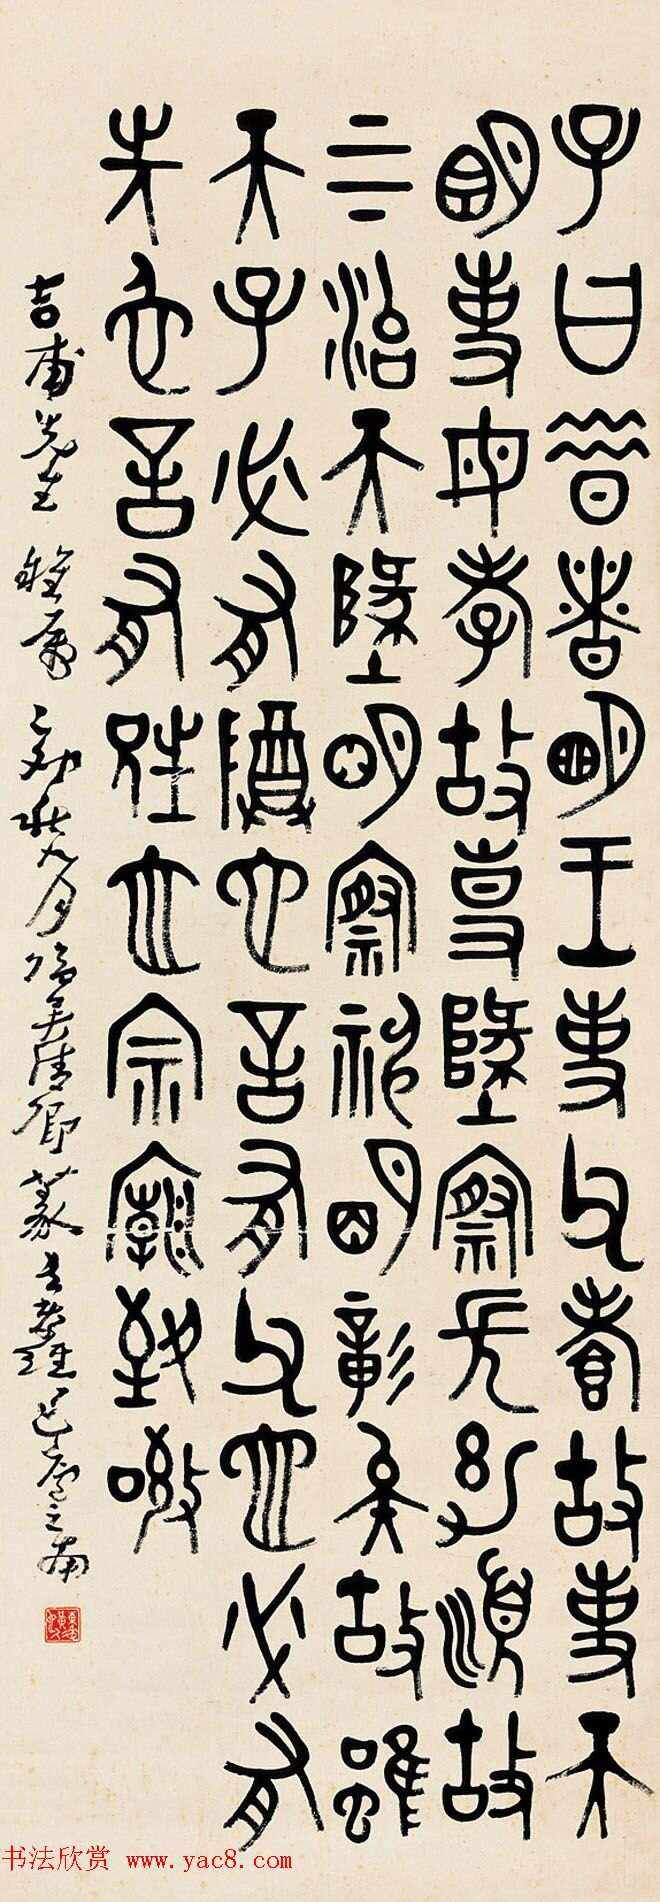 子曰昔者明王事父孝故事天
明事母孝故事地察長幼順故
上下治天地明察神明彰矣故雖
天子必有尊也言有父也必有
先也言有兄也宗廟致敬
吉甫先生 雅屬 乙卯秋九月臨吳清卿篆書孝經
书法欣赏 www.yac8.com